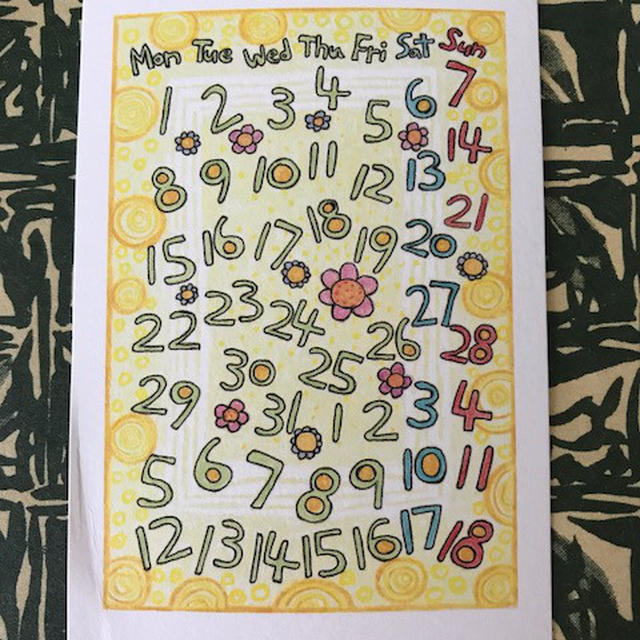 Mon Tue Wed Thu Fri Sat Sun
1 2 3 4 5 6 7
8 9 10 11 12 13 14
15 16 17 18 19 20 21
22 23 24 25 26 27 28
29 30 31 1 2 3 4
5 6 7 8 9 10 11
12 13 14 15 16 17 18